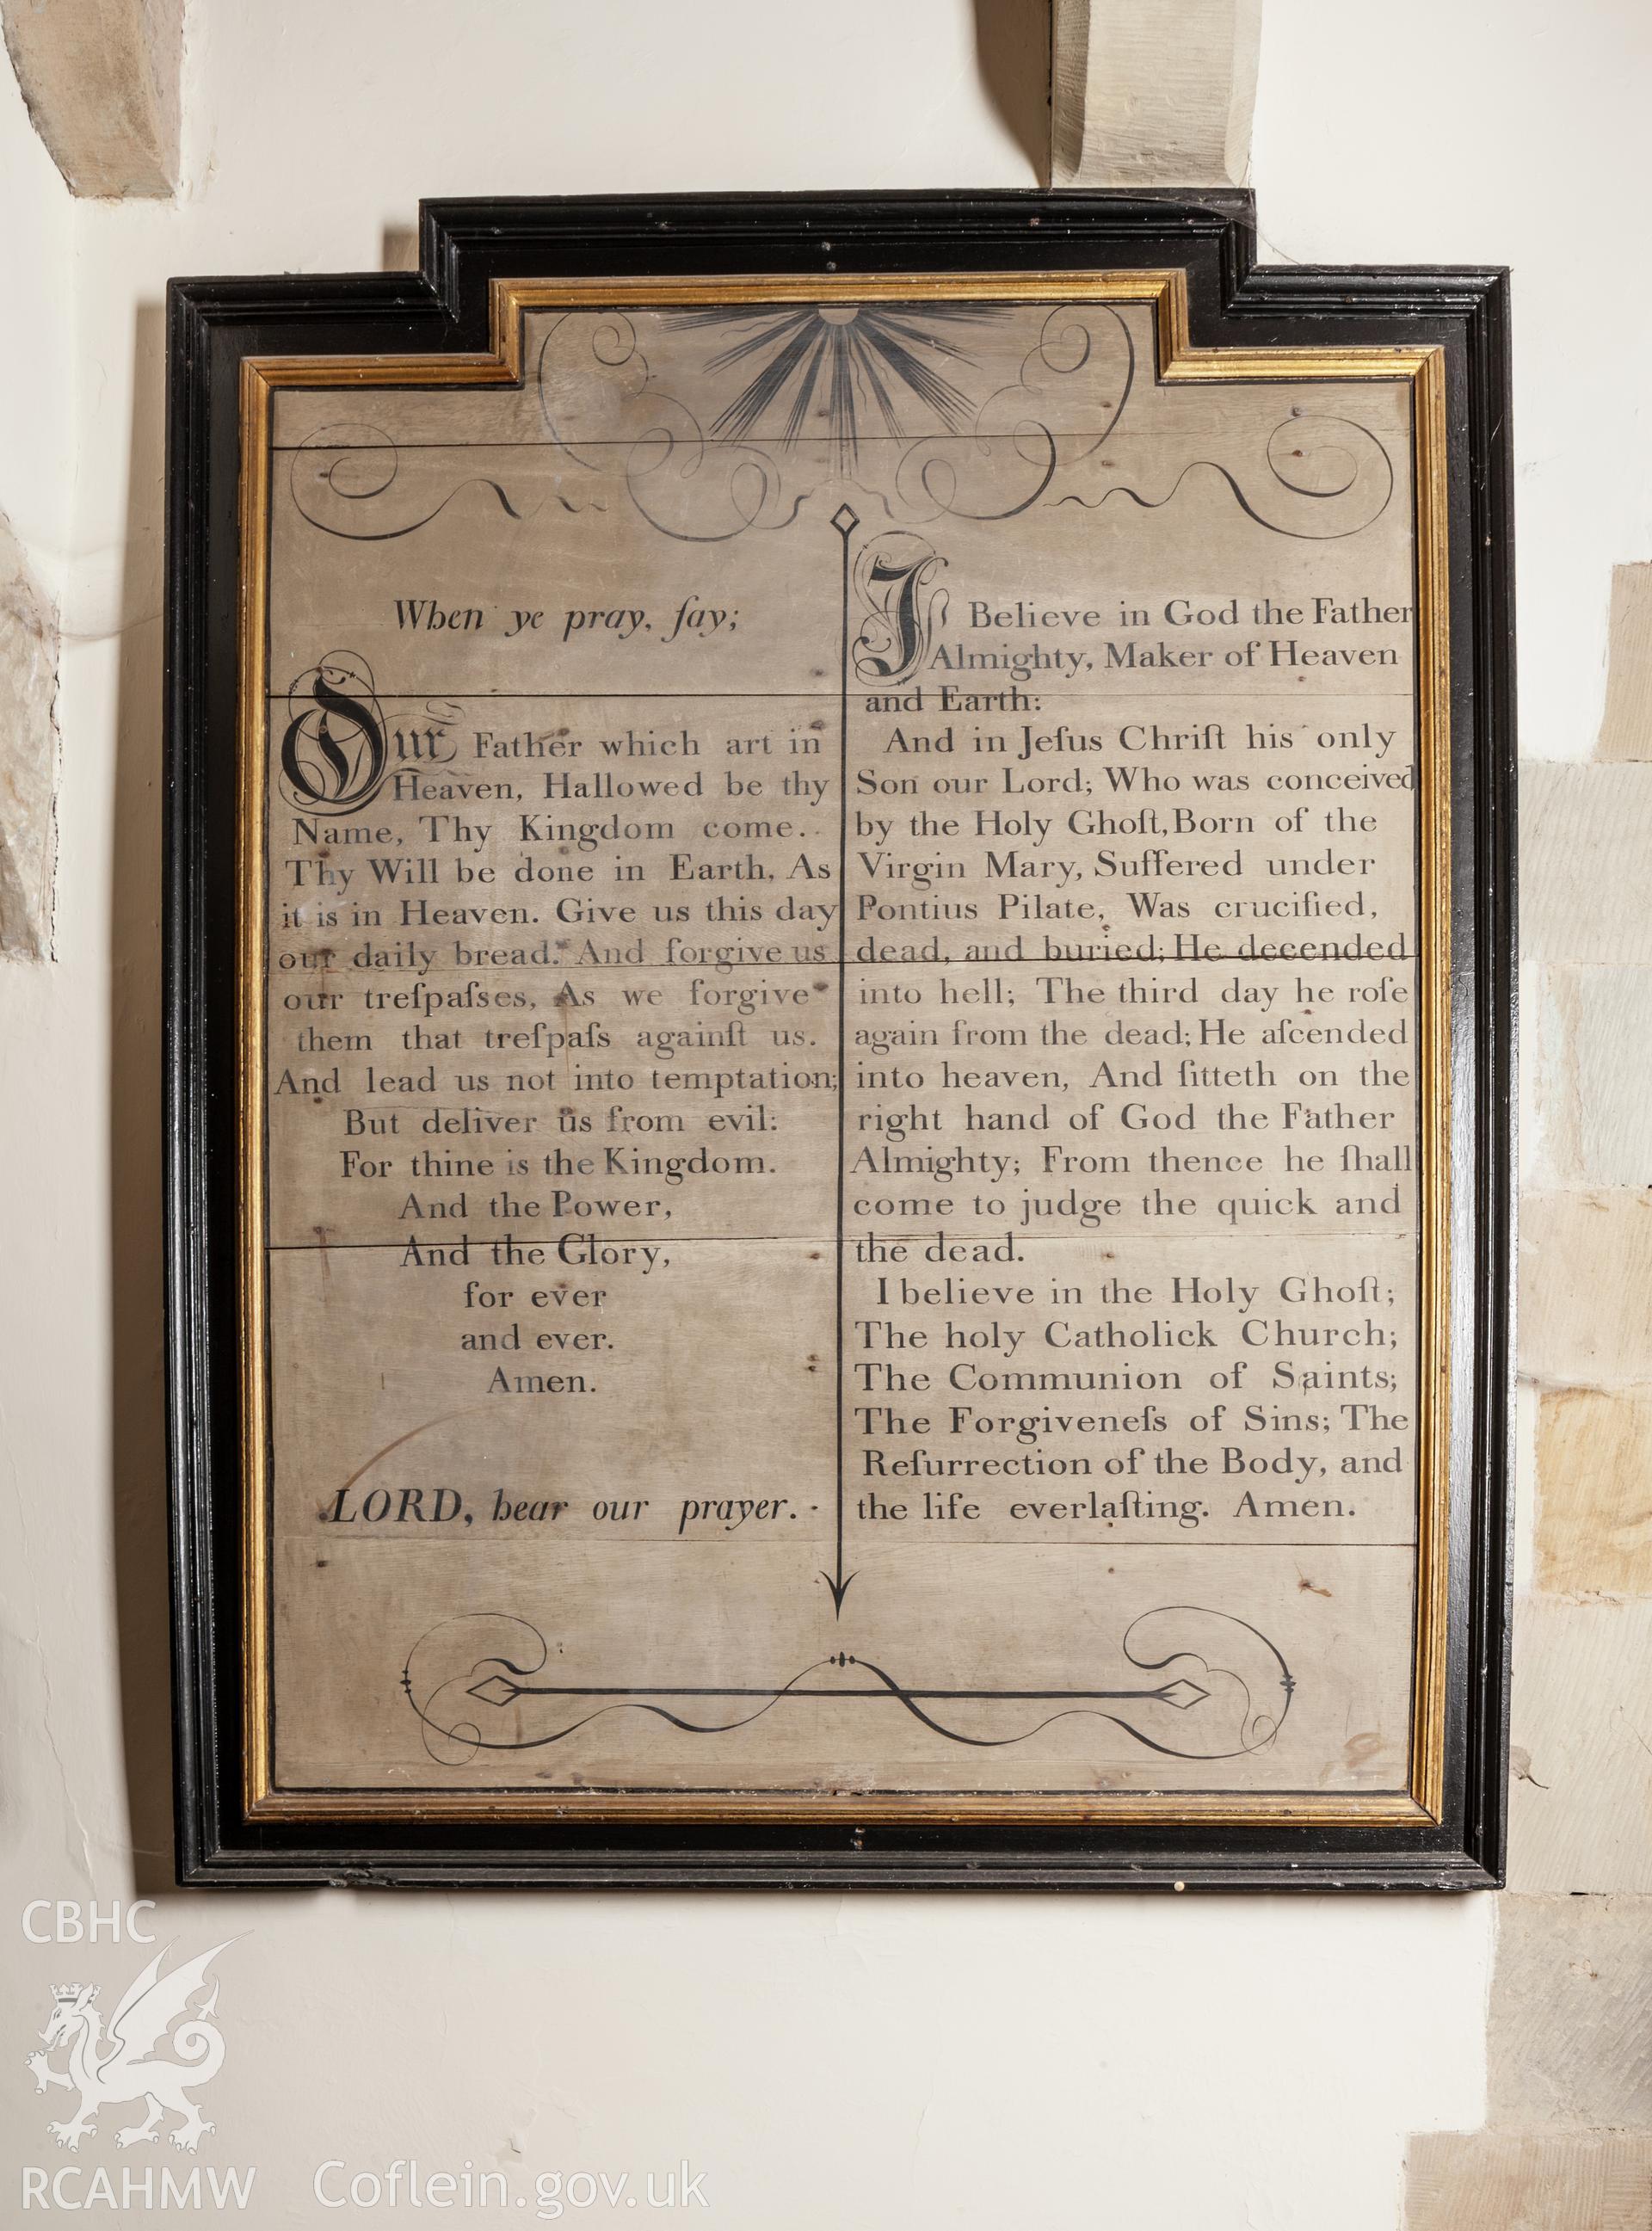 When ye pray, ſay;
Our Father which art in
Heaven, Hallowed be thy
Name, Thy Kingdom come.
Thy Will be done in Earth, As
it is in Heaven. Give us this day
our daily bread. And forgive us
our treſpaſses, As we forgive
them that treſpaſs againſt us.
And lead us not into temptation;
But deliver us from evil:
For thine is the Kingdom.
And the Power,
And the Glory,
for ever
and ever.
Amen.
LORD, hear our prayer.
I Believe in God the Father
Almighty, Maker of Heaven
and Earth:
And in Jeſus Chriſt his only
Son our Lord; Who was conceived
by the Holy Ghoſt, Born of the
Virgin Mary, Suffered under
Pontius Pilate, Was crucified,
dead, and buried; He decended
into hell; The third day he roſe
again from the dead; He aſcended
into heaven, And ſitteth on the
right hand of God the Father
Almighty; From thence he ſhall
come to judge the quick and
the dead.
I believe in the Holy Ghoſt;
The holy Catholick Church;
The Communion of Saints;
The Forgiveneſs of Sins; The
Reſurrection of the Body, and
the life everlaſting. Amen.
CBHC
RCAHMW
Coflein.gov.uk